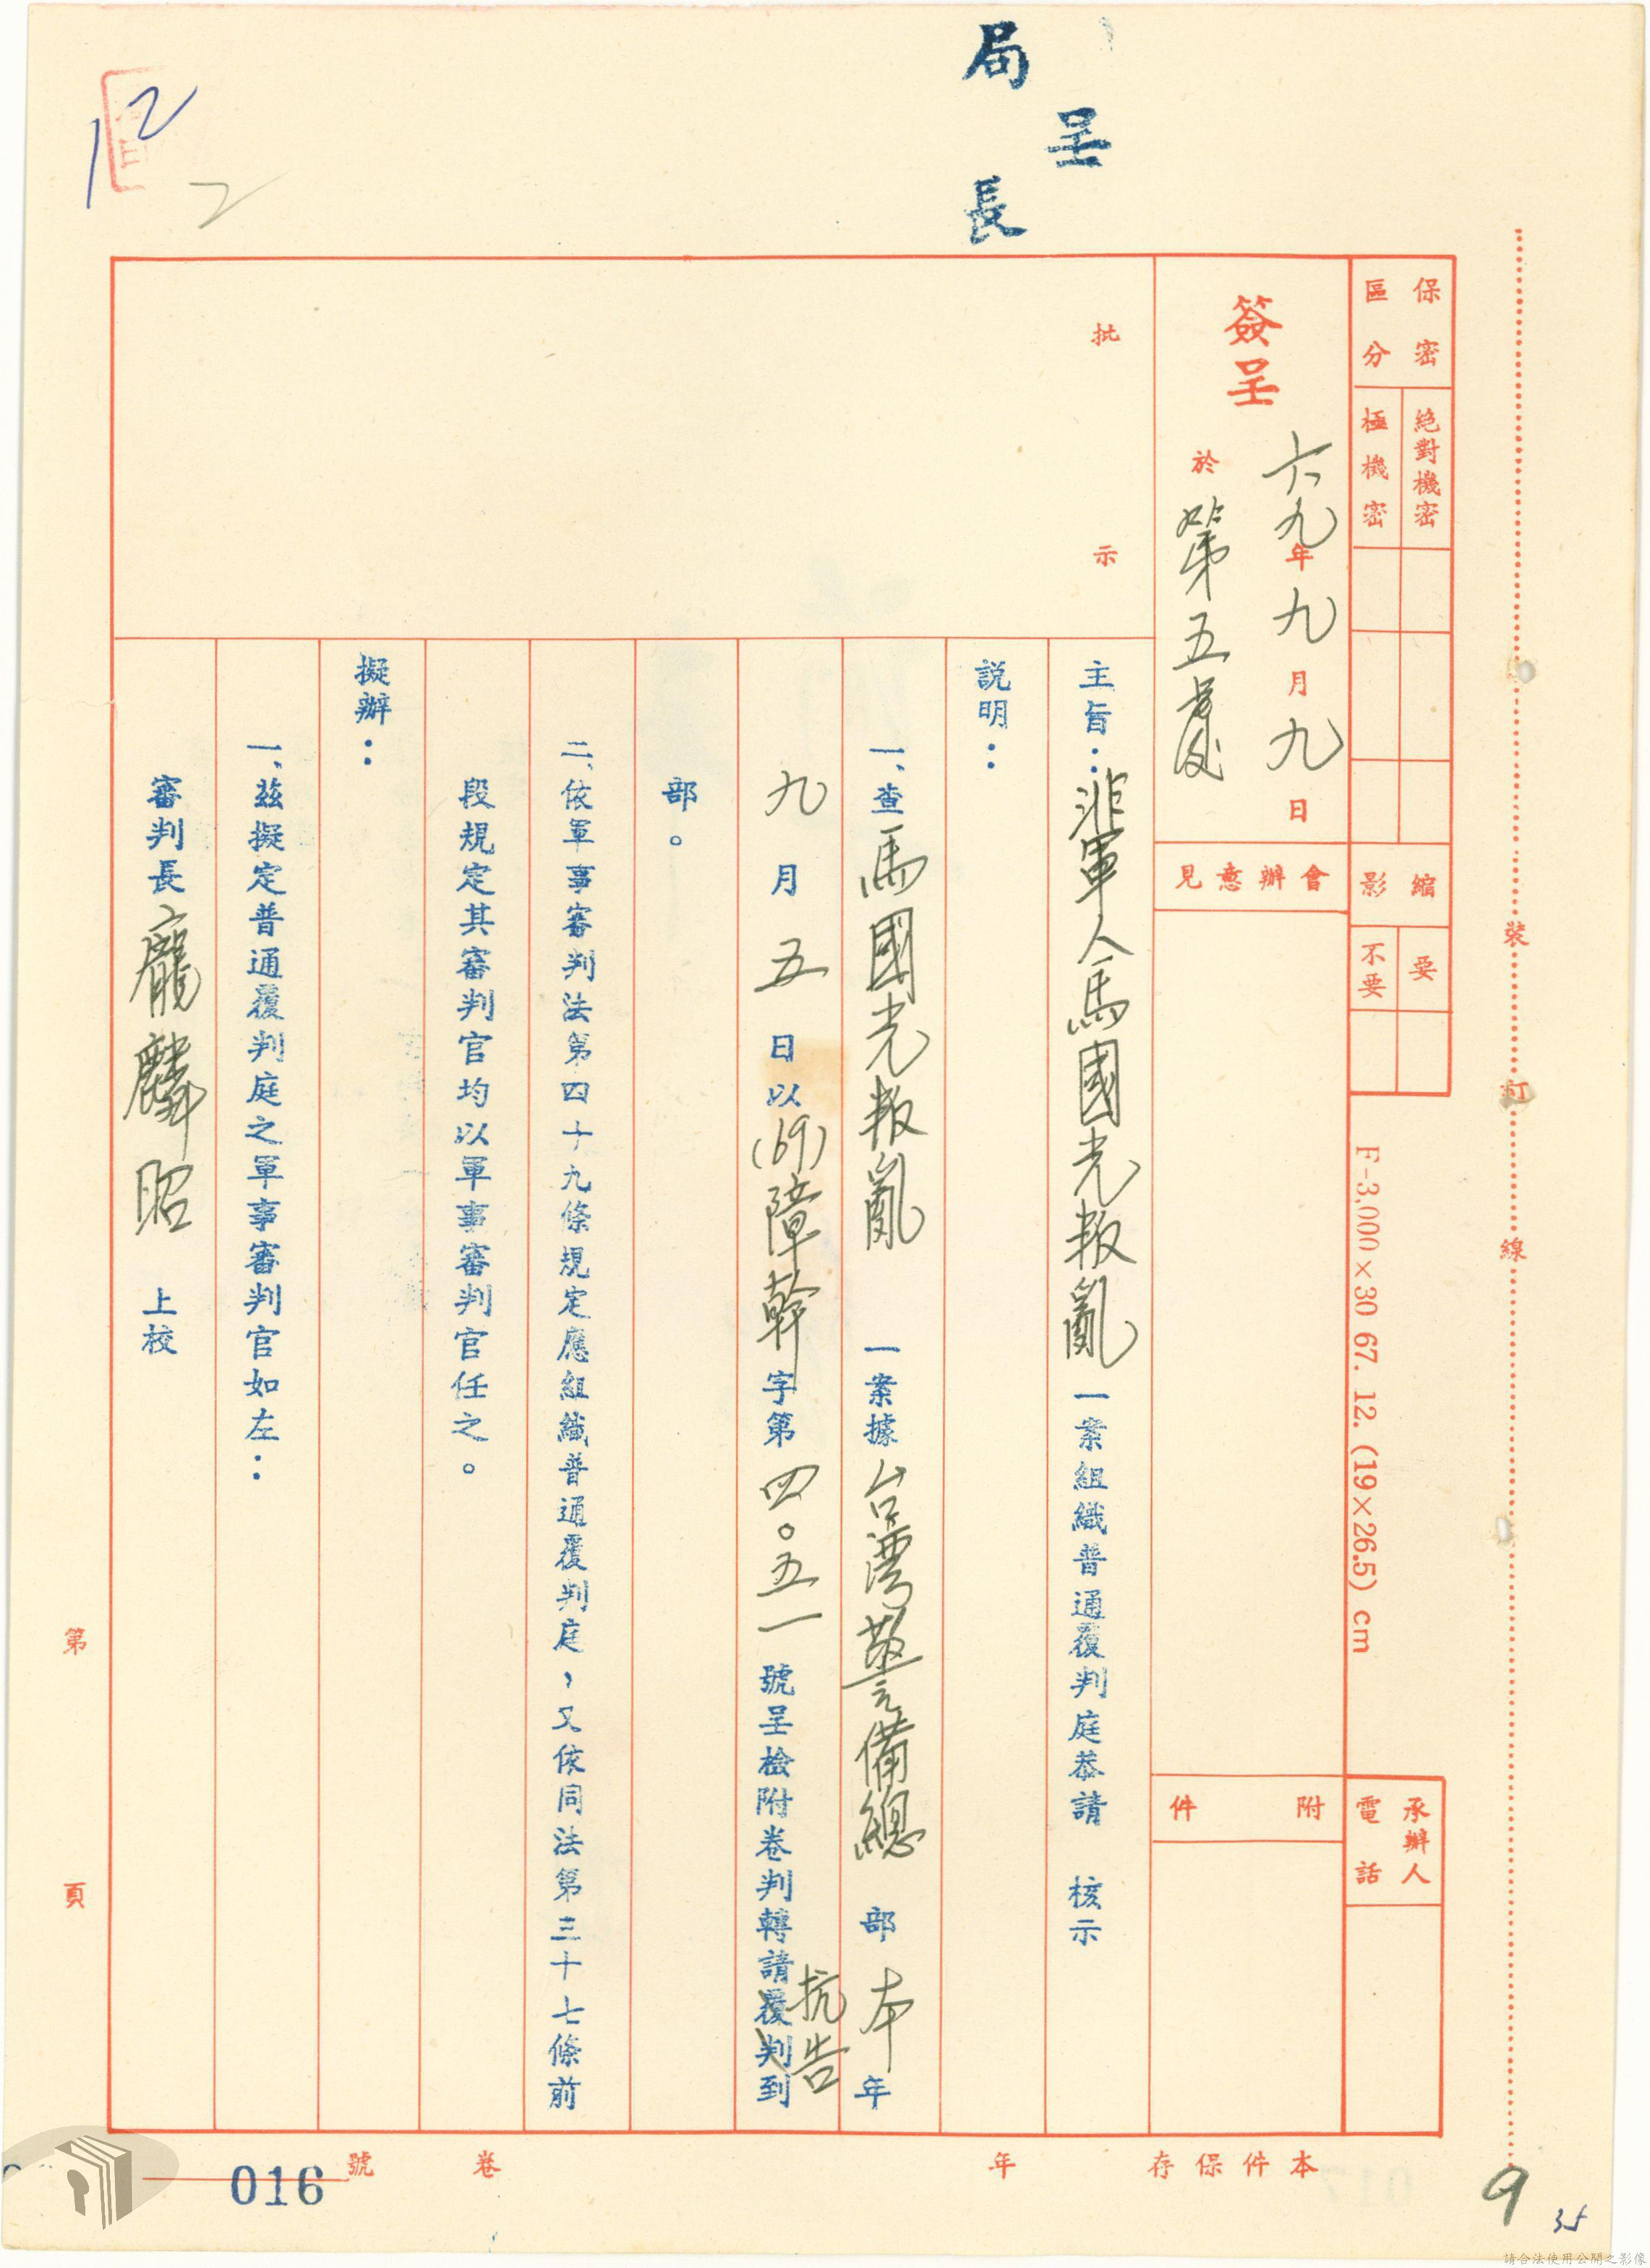 局長
呈
12
2
保密區分
絕對機密
極機密
縮影
要
不要
F-3,000×30 67. 12. (19×26.5) cm
承辦人
電話
簽呈
六九年九月九日
於第五處
會辦意見
附件
批示
裝訂線
主旨：非軍人馬國光叛亂一案組織普通覆判庭恭請 核示
説明：
一、查馬國光叛亂 一案據台灣警備總部本年
九月五日以(69)障幹字第四〇五一號呈檢附卷判轉請覆判到
抗告
部。
二、依軍事審判法第四十九條規定應組織普通覆判庭，又依同法第三十七條前
段規定其審判官均以軍事審判官任之。
擬辦：
一、茲擬定普通覆判庭之軍事審判官如左：
審判長龐麟昭 上校
第頁
本件保存年
卷號
016
9
35
請合法使用公開之影像